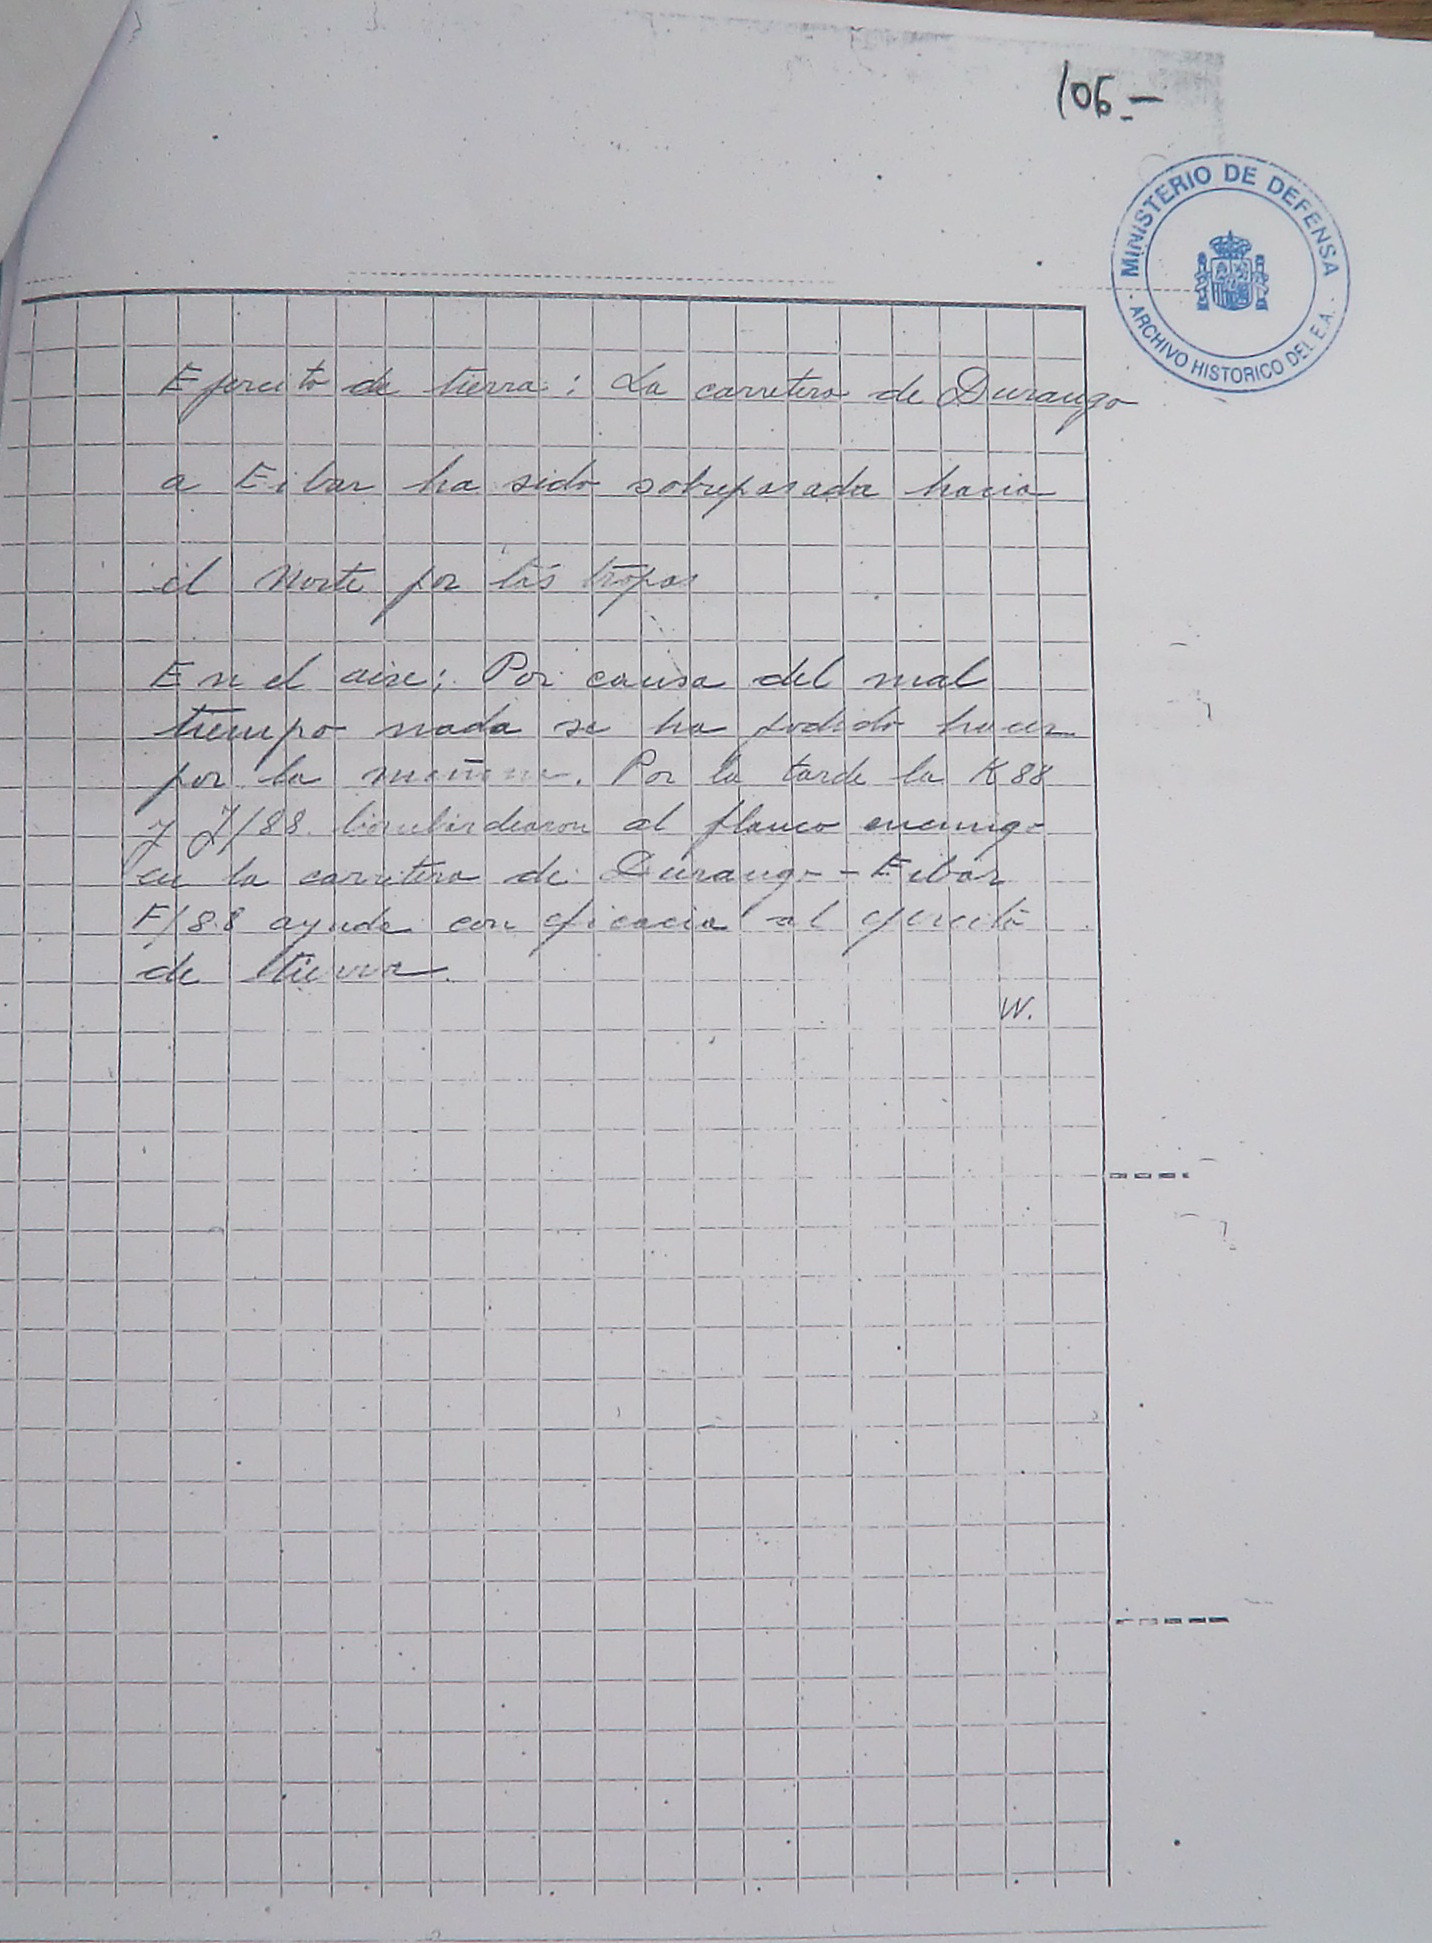 106.-
MINISTERIO DE DEFENSA
ARCHIVO HISTORICO DEL E.A.
Ejercito de tierra: La carretera de Durango
a Eibar ha sido sobrepasada hacia
el Norte por las tropas
En el aire: Por causa del mal
tiempo nada se ha podido hacer
por la mañana. Por la tarde la K 88
y J/88 bombardearon al flanco enemigo
en la carretera de Durango - Eibar
F/88 ayuda con eficacia al ejercito
de tierra.
W.